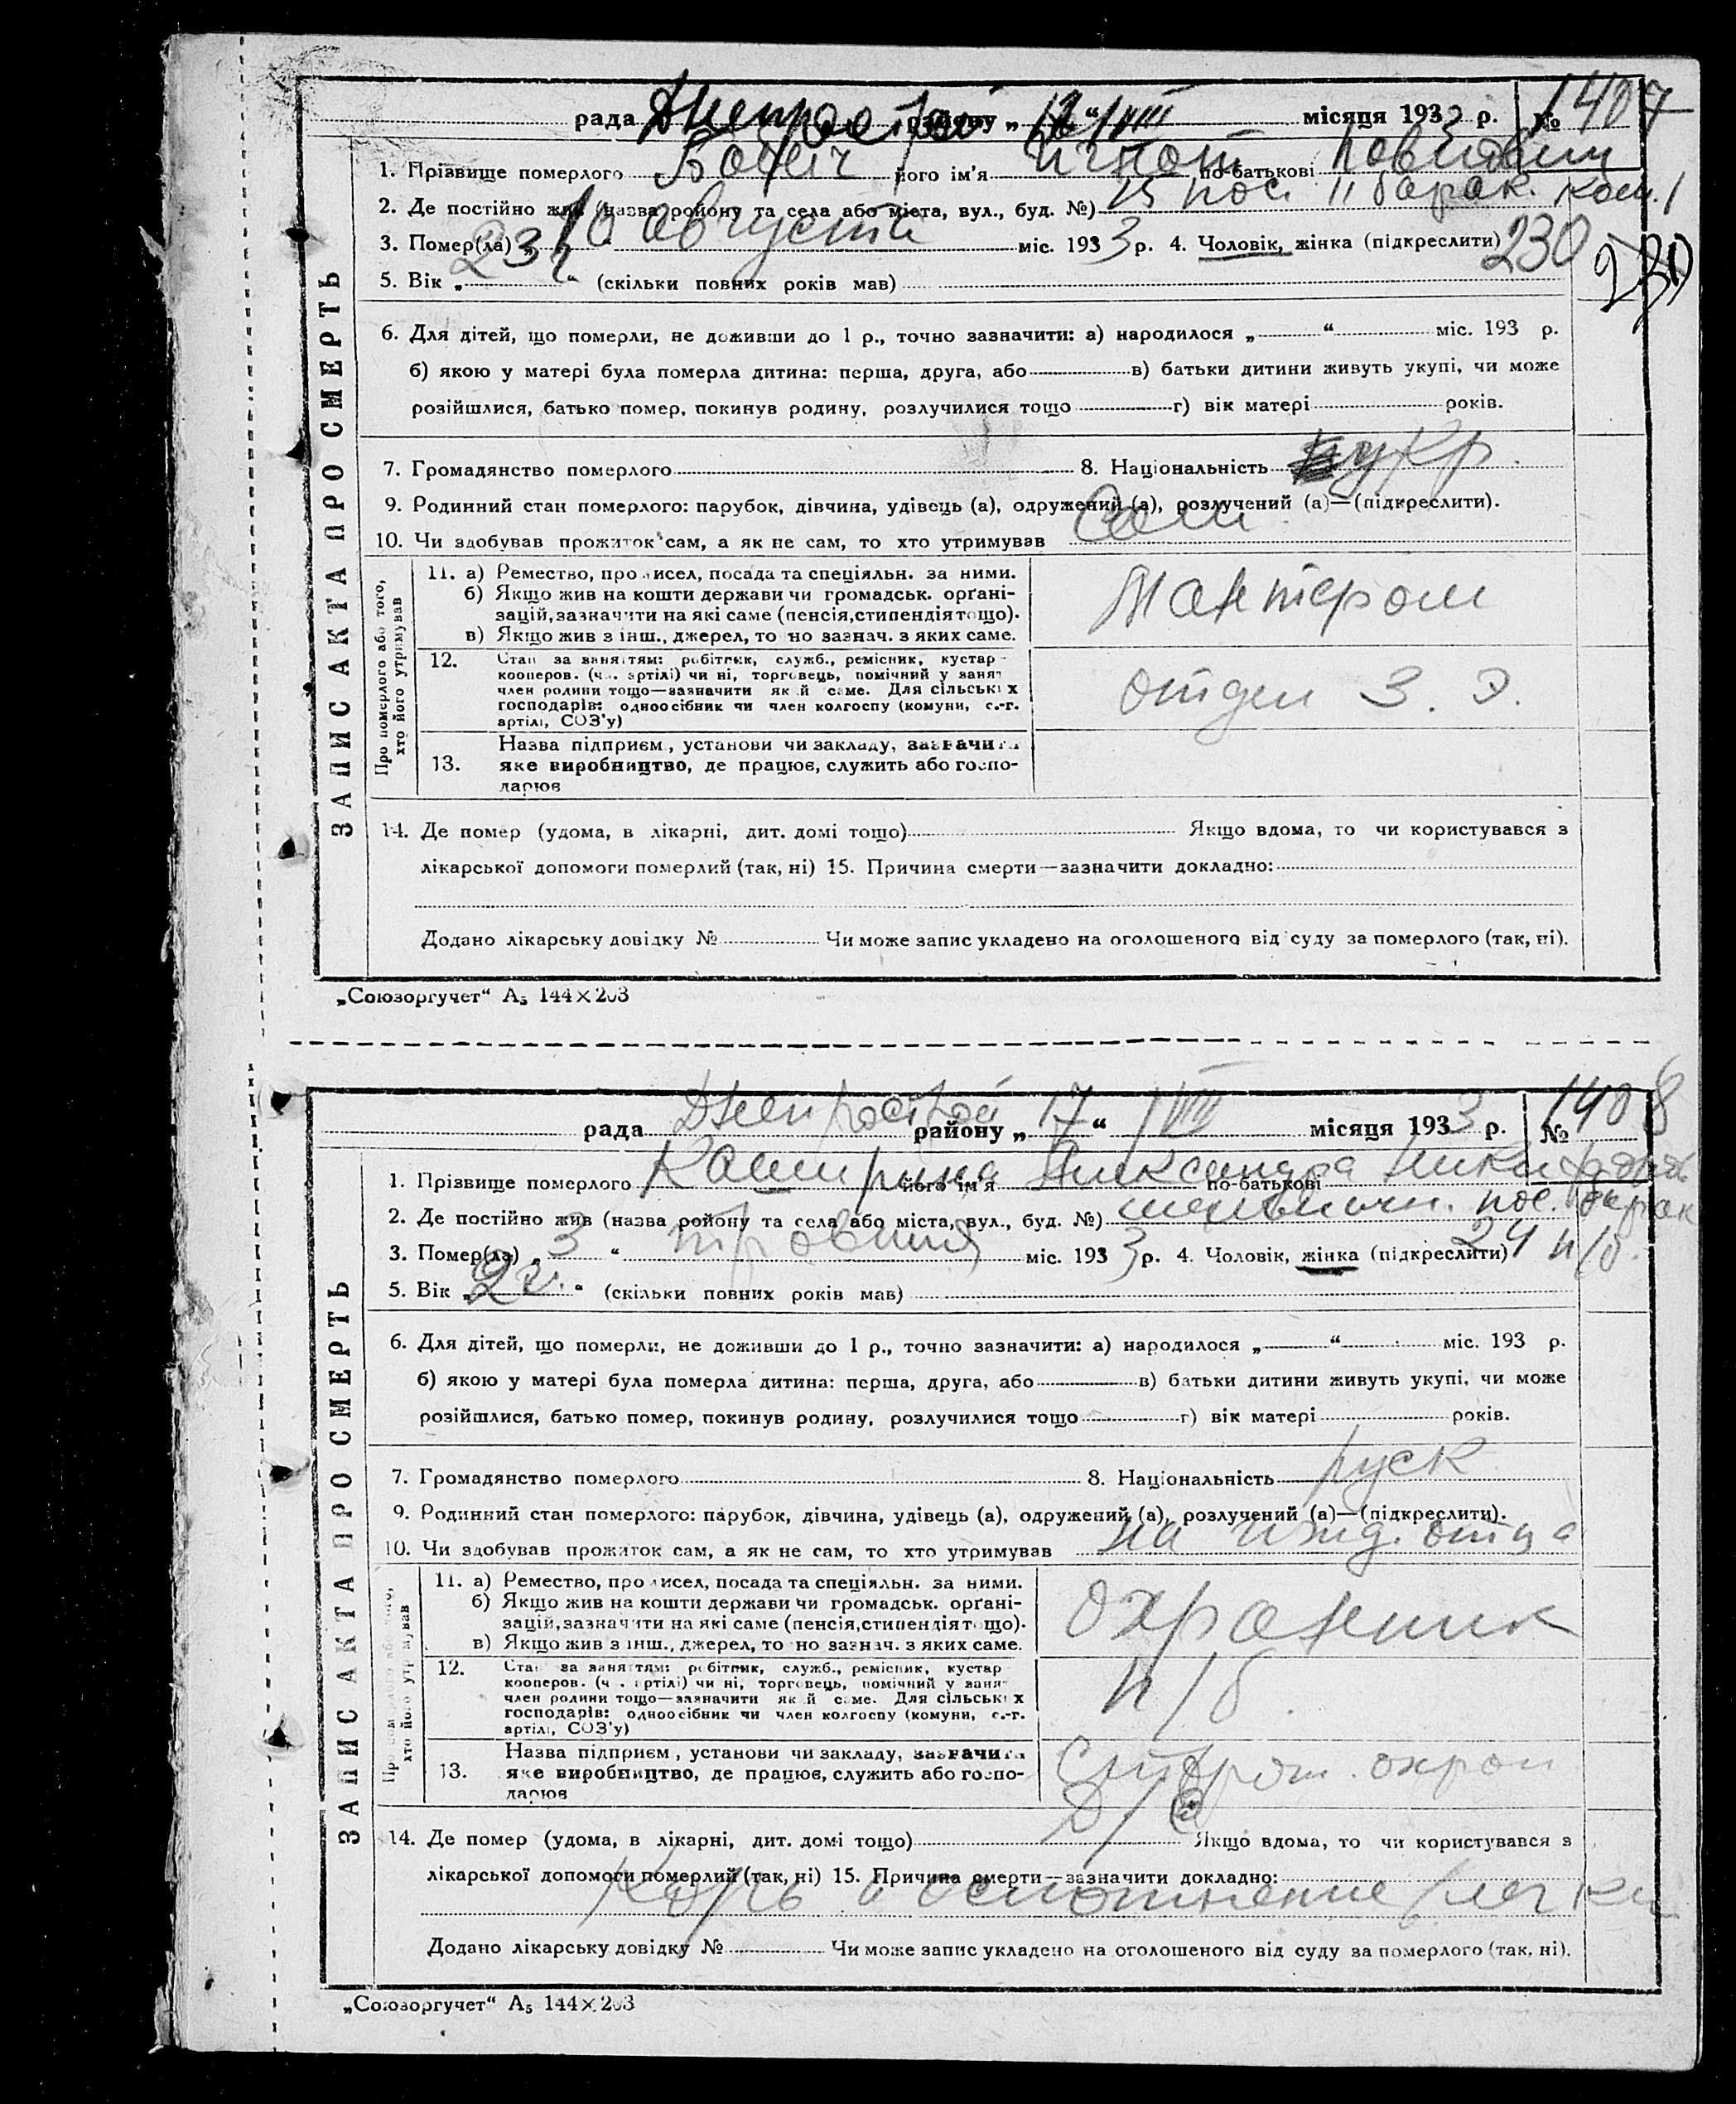 рада Днепрострой району „ 17 “ VIII місяця 1933 р. № 1407
1. Прізвище померлого його ім'я Игнат по-батькові
2. Де постійно жив (назва ройону та села або міста, вул., буд. №) 15 пос. 11 барак. ком. 1
3. Помер(ла) „ 10 “ августа міс. 1933 р. 4. Чоловік, жінка (підкреслити) 230
230
5. Вік „ 23 “ (скільки повних років мав)
6. Для дітей, що померли, не доживши до 1 р., точно зазначити: а) народилося „ “ міс. 193 р.
б) якою у матері була померла дитина: перша, друга, або в) батьки дитини живуть укупі, чи може
розійшлися, батько помер, покинув родину, розлучилися тощо г) вік матері років.
7. Громадянство померлого 8. Національність укр.
9. Родинний стан померлого: парубок, дівчина, удівець (а), одружений (а), розлучений (а)—(підкреслити).
10. Чи здобував прожиток сам, а як не сам, то хто утримував Сам
ЗАПИС АКТА ПРО СМЕРТЬ
Про померлого або того, хто його утримував
11. а) Ремество, про исел, посада та спеціяльн. за ними.
б) Якщо жив на кошти держави чи громадськ. орґані-
зацій, зазначити на які саме (пенсія, стипендія тощо).
в) Якщо жив з інш., джерел, то но зазнач. з яких саме.
Монтером
12. Стан за заняттям: робітник, служб., ремісник, кустар -
кооперов. (ч. артілі) чи ні, торговець, помічний у занят
член родини тощо—зазначити як й саме. Для сільських
господарів: одноосібник чи член колгоспу (комуни, с.-г.
артілі, СОЗ'у)
отдел З. Э.
13. Назва підприєм, установи чи закладу, зазначита
яке виробництво, де працює, служить або госпо-
дарює
14. Де помер (удома, в лікарні, дит. домі тощо) Якщо вдома, то чи користувався з
лікарської допомоги померлий (так, ні) 15. Причина смерти—зазначити докладно:
Додано лікарську довідку № Чи може запис укладено на оголошеного від суду за померлого (так, ні).
„Союзоргучет“ А5 144×203
рада Днепрострой району „ 17 “ VIII місяця 1933 р. № 1408
1. Прізвище померлого Каширина його ім'я Александра по-батькові
2. Де постійно жив (назва ройону та села або міста, вул., буд. №) пос. барак
3. Помер(ла) „ 3 “ міс. 1933 р. 4. Чоловік, жінка (підкреслити) 24 н/б.
5. Вік „ 2 г. “ (скільки повних років мав)
6. Для дітей, що померли, не доживши до 1 р., точно зазначити: а) народилося „ “ міс. 193 р.
б) якою у матері була померла дитина: перша, друга, або в) батьки дитини живуть укупі, чи може
розійшлися, батько помер, покинув родину, розлучилися тощо г) вік матері років.
7. Громадянство померлого 8. Національність руск
9. Родинний стан померлого: парубок, дівчина, удівець (а), одружений (а), розлучений (а)—(підкреслити).
10. Чи здобував прожиток сам, а як не сам, то хто утримував на ижд. отца
ЗАПИС АКТА ПРО СМЕРТЬ
11. а) Ремество, про исел, посада та спеціяльн. за ними.
б) Якщо жив на кошти держави чи громадськ. орґані-
зацій, зазначити на які саме (пенсія, стипендія тощо).
в) Якщо жив з інш., джерел, то но зазнач. з яких саме.
Охранник
12. Стан за заняттям: робітник, служб., ремісник, кустар
кооперов. (ч. артілі) чи ні, торговець, помічний у заня-
член родини тощо—зазначити як й саме. Для сільських
господарів: одноосібник чи член колгоспу (комуни, с.-г.
артілі, СОЗ'у)
н/б.
13. Назва підприєм, установи чи закладу, зазначита
яке виробництво, де працює, служить або госпо-
дарює
охран
14. Де помер (удома, в лікарні, дит. домі тощо) Якщо вдома, то чи користувався з
лікарської допомоги померлий (так, ні) 15. Причина смерти—зазначити докладно:
Корь осложнение легких
Додано лікарську довідку № Чи може запис укладено на оголошеного від суду за померлого (так, ні).
„Союзоргучет“ А5 144×203